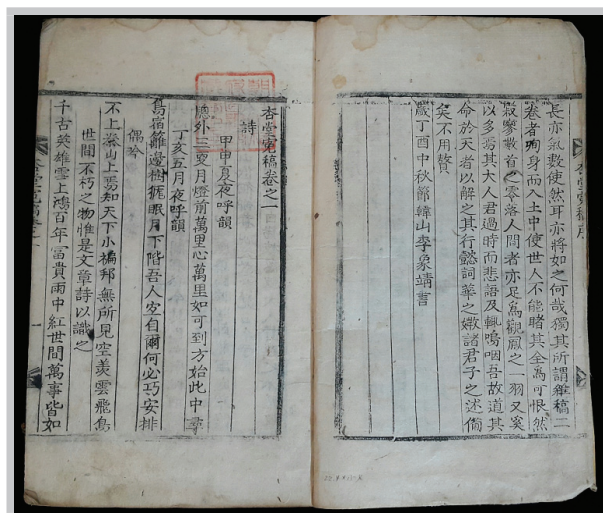 長亦氣數使然耳亦將如之何哉獨其所謂雜稿二
卷者殉身而入土中使世人不能睹其全為可恨然
寂寥數首之零落人間者亦足為觀鳳之一羽又奚
以多爲其大人君過時而悲語及輒嗚咽吾故道其
命於天者以解之其行懿詞華之媺諸君子之述備
矣不用贅
歲丁酉中秋節韓山李象靖書
杏堂寃稿卷之一
詩
甲申夏夜呼韻
牕外三更月燈前萬里心萬里如可到方始此中尋
丁亥五月夜呼韻
鳥宿籬邊樹狵眠月下階吾人安自爾何必巧安排
偶吟
不上泰山上焉知天下小撝邦無所見空羨雲飛鳥
世間不朽之物惟是文章詩以識之
千古英雄雲上鴻百年富貴雨中紅世間萬事皆如